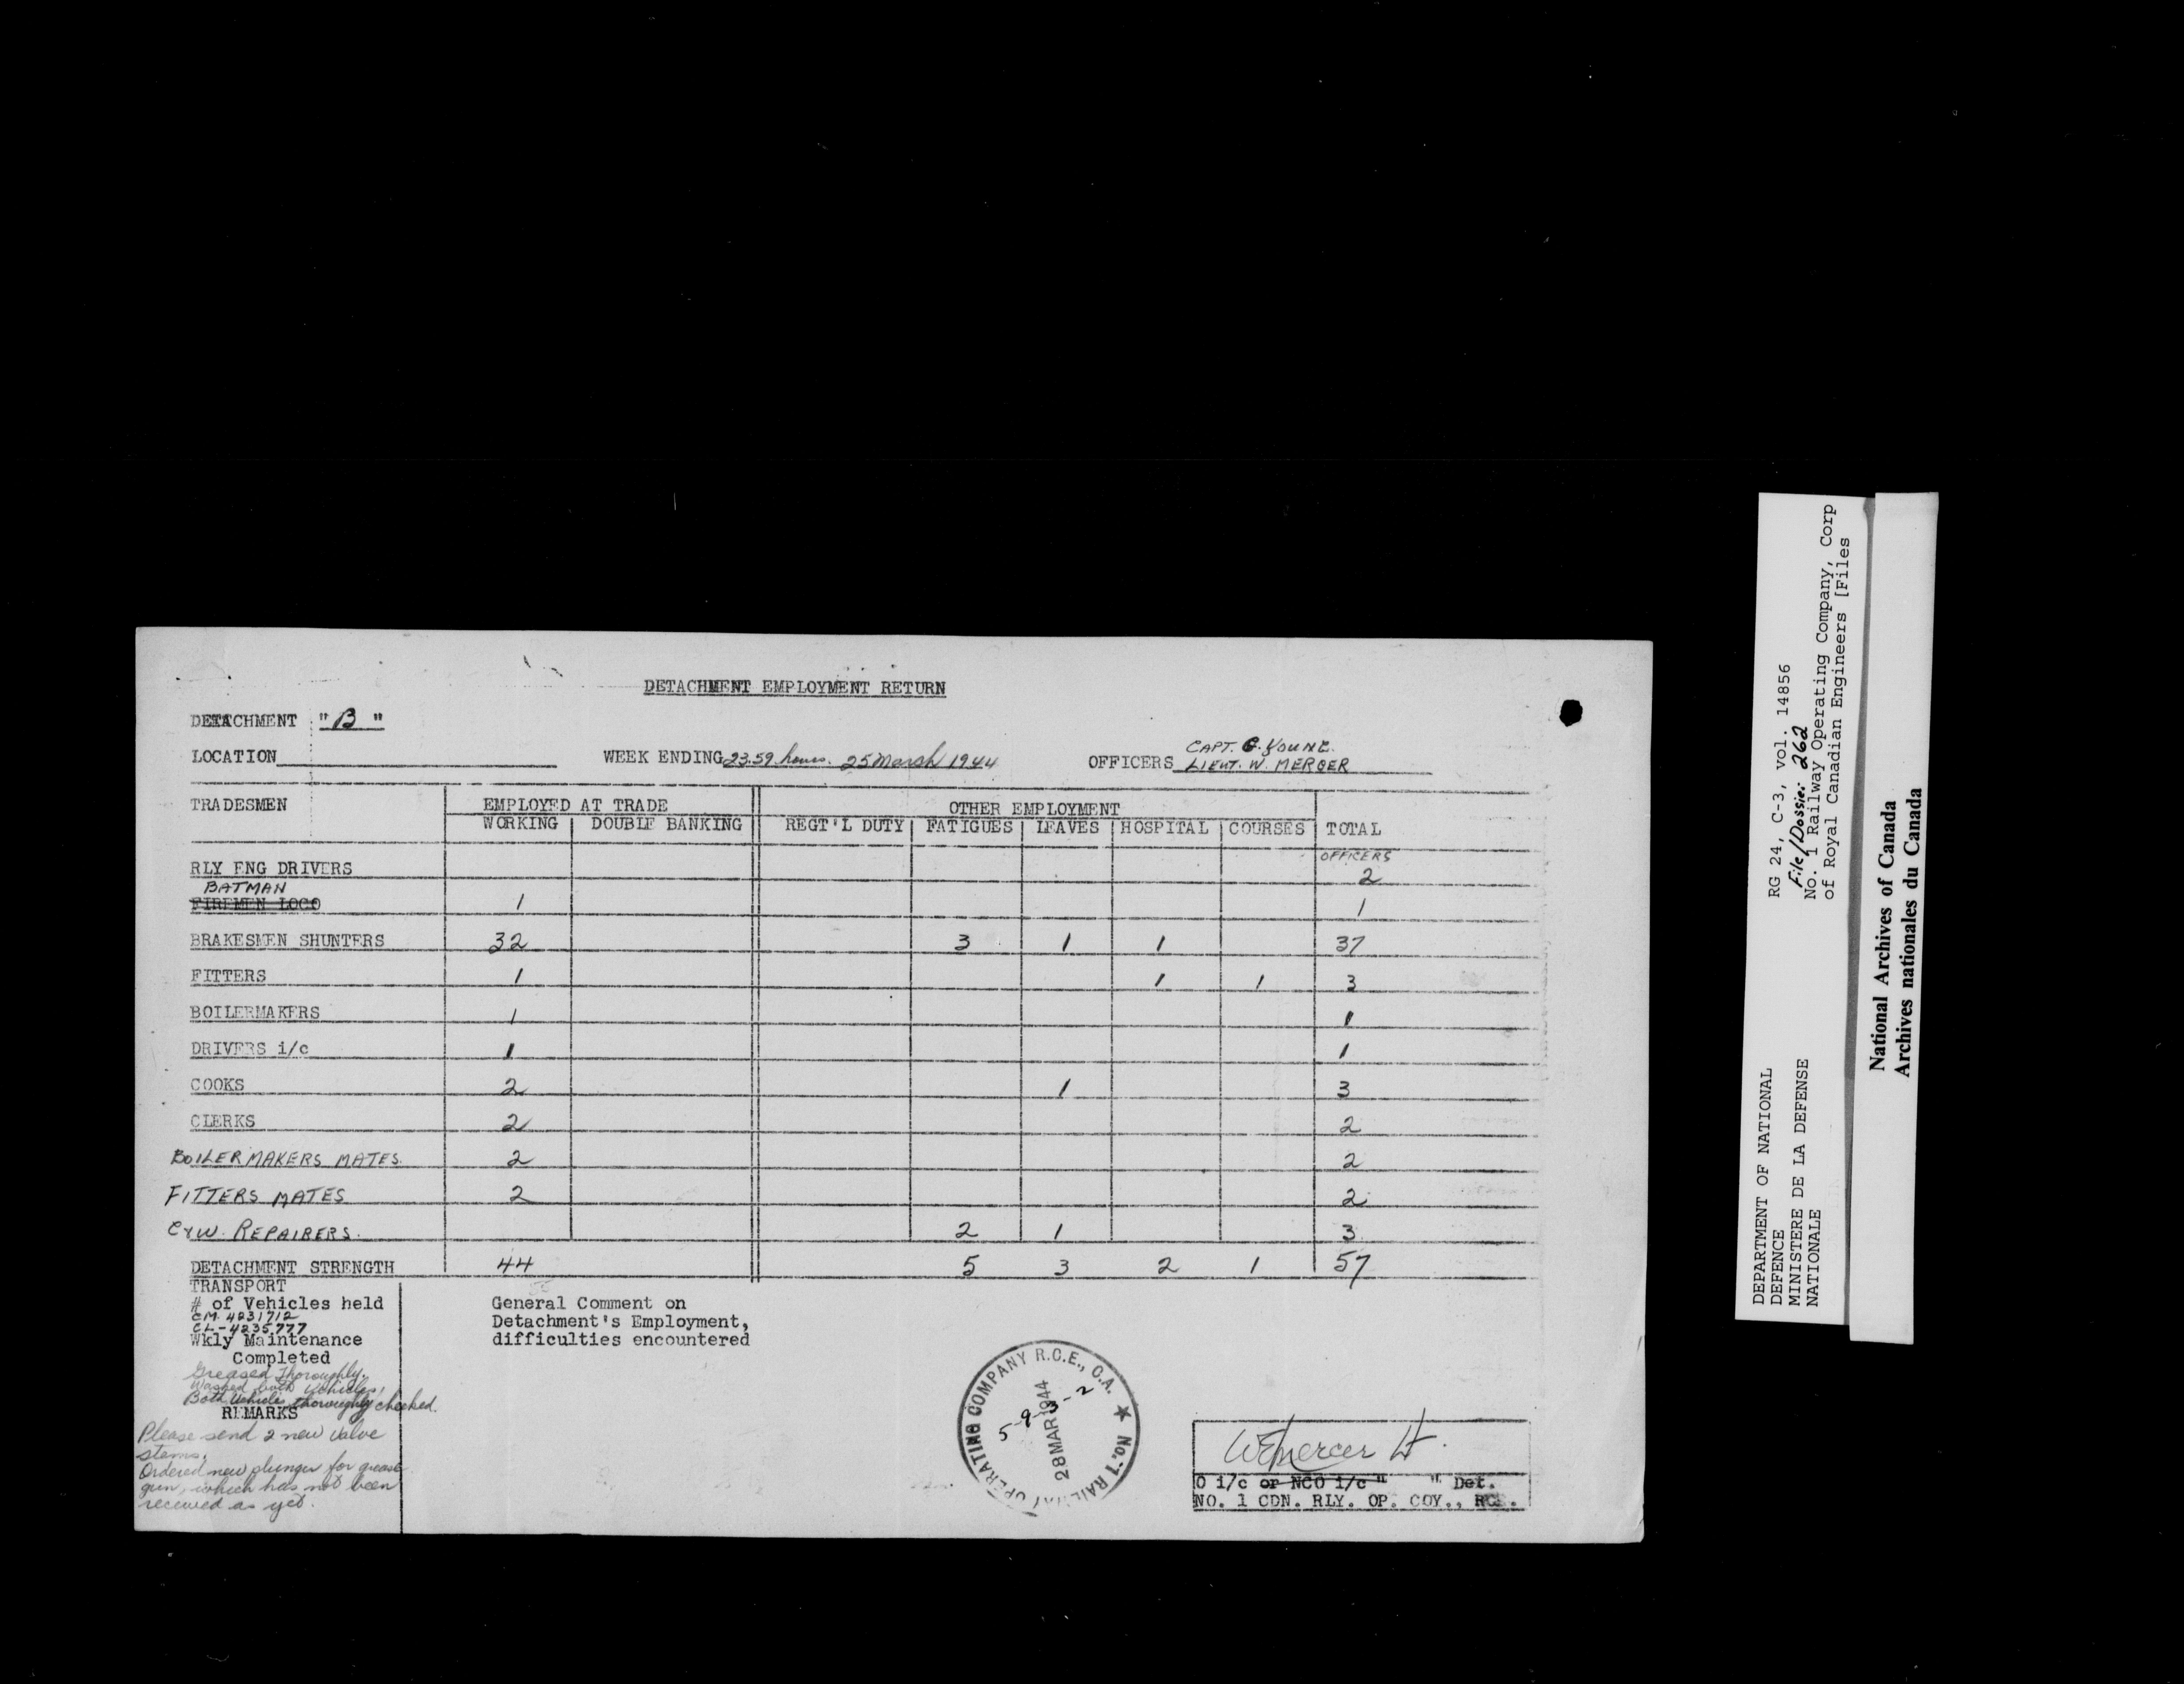 DETACHMENT EMPLOYMENT RETURN
DETACHMENT "B"
LOCATION WEEK ENDING 23.59 hours. 25 March 1944 OFFICERS CAPT. G. YOUNG.
LIEUT. W. MERCER
TRADESMEN EMPLOYED AT TRADE OTHER EMPLOYMENT
WORKING DOUBLE BANKING REGT'L DUTY FATIGUES LEAVES HOSPITAL COURSES TOTAL
OFFICERS
RLY ENG DRIVERS 2
BATMAN
FIREMEN LOCO 1 1
BRAKESMEN SHUNTERS 32 3 1 1 37
FITTERS 1 1 1 3
BOILERMAKERS 1 1
DRIVERS i/c 1 1
COOKS 2 1 3
CLERKS 2 2
BOILERMAKERS MATES. 2 2
FITTERS MATES 2 2
C&W. REPAIRERS. 2 1 3
DETACHMENT STRENGTH 44 5 3 2 1 57
TRANSPORT
# of Vehicles held
CM 4231712
CL-4235777
Wkly Maintenance
Completed
Greased Thoroughly.
Washed both Vehicles,
Both Vehicles thoroughly checked.
REMARKS
Please send 2 new valve
stems.
Ordered new plunger for grease
gun, which has not been
received as yet.
General Comment on
Detachment's Employment,
difficulties encountered
No. 1 RAILWAY OPERATING COMPANY R.C.E., C.A. ★
28 MAR 1944
5-9-3-2
WEMercer Lt.
O i/c or NCO i/c " " Det.
NO. 1 CDN. RLY. OP. COY., RCE.
DEPARTMENT OF NATIONAL
DEFENCE
MINISTERE DE LA DEFENSE
NATIONALE
RG 24, C-3, vol. 14856
File/Dossier 262
No. 1 Railway Operating Company, Corp
of Royal Canadian Engineers [Files
National Archives of Canada
Archives nationales du Canada